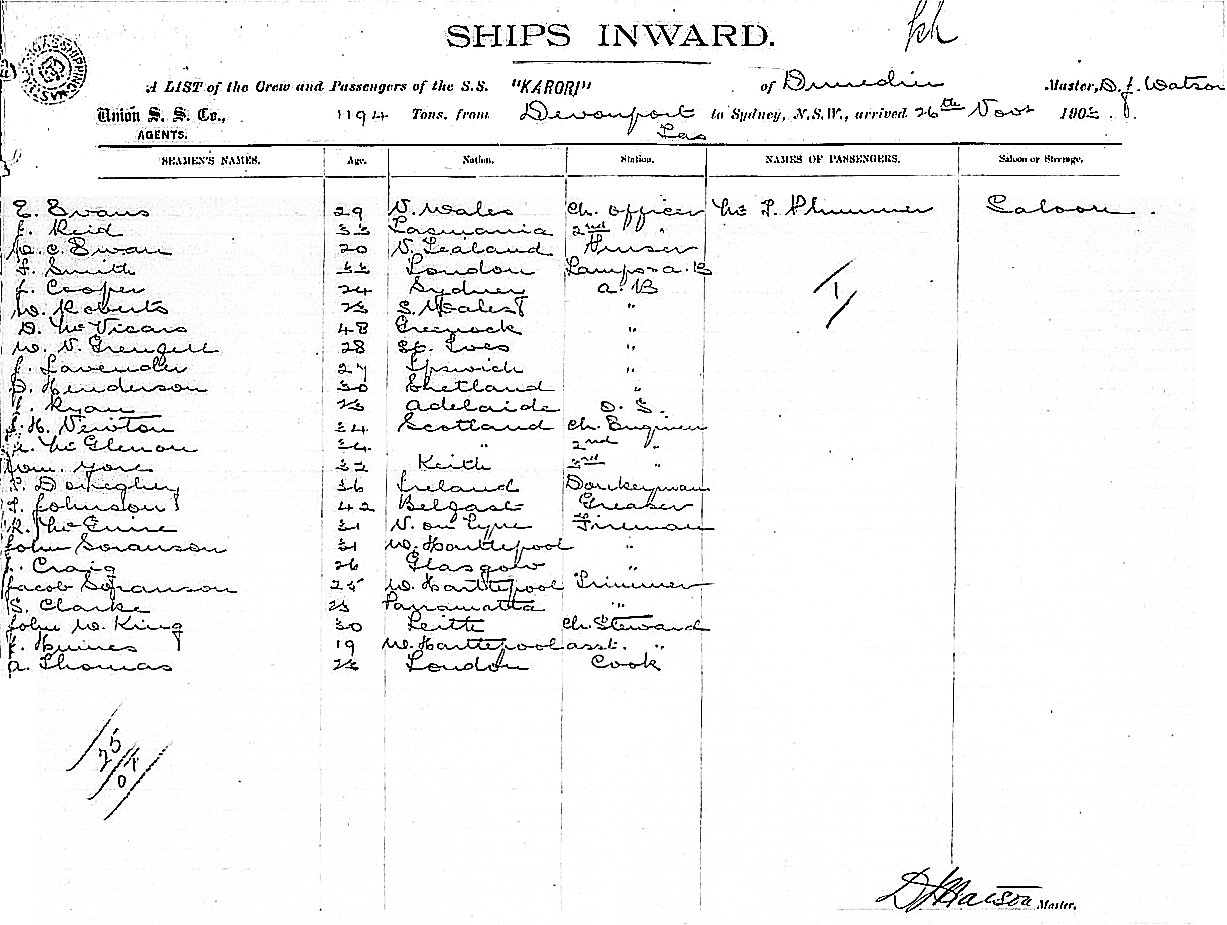 SHIPS INWARD.
A LIST of the Crew and Passengers of the S.S. "KARORI" of Dunedin Master, D. J. Watson
Union S. S. Co., 1194 Tons. from Devonport to Sydney, N.S.W., arrived 26th Novr 190
AGENTS. Tas
SEAMEN'S NAMES. Age. Nation. Station. NAMES OF PASSENGERS. Saloon or Steerage.
E. Evans 29 N. Wales Ch. Officer Saloon.
Reid 33 Tasmania 2nd "
C. Swan 20 N. Zealand Purser
Smith 33 London Lamps & A.B
J. Cooper 24 Sydney A.B 1
W. Roberts 23 S. Wales "
D. McVicars 48 Greenock "
W. N. Grenfell 28 St. Ives "
J. Lavender 27 Ipswich "
D. Henderson 30 Shetland "
Ryan 23 Adelaide O. S.
H. Newton 34 Scotland Ch. Engineer
McGlenon 34 " 2nd "
Wm. York 32 Keith 3rd "
Doneghey 36 Ireland Donkeyman
Johnson 42 Belfast Greaser
R. McGuire 31 N. on Tyne Fireman
John Soranson 31 W. Hartlepool "
Craig 26 Glasgow "
Jacob Soranson 25 W. Hartlepool Trimmer
S. Clarke 23 Parramatta "
John W. King 30 Leith Ch. Steward
19 W. Hartlepool asst. "
A. Thomas 23 London Cook
25
D J Watson Master.